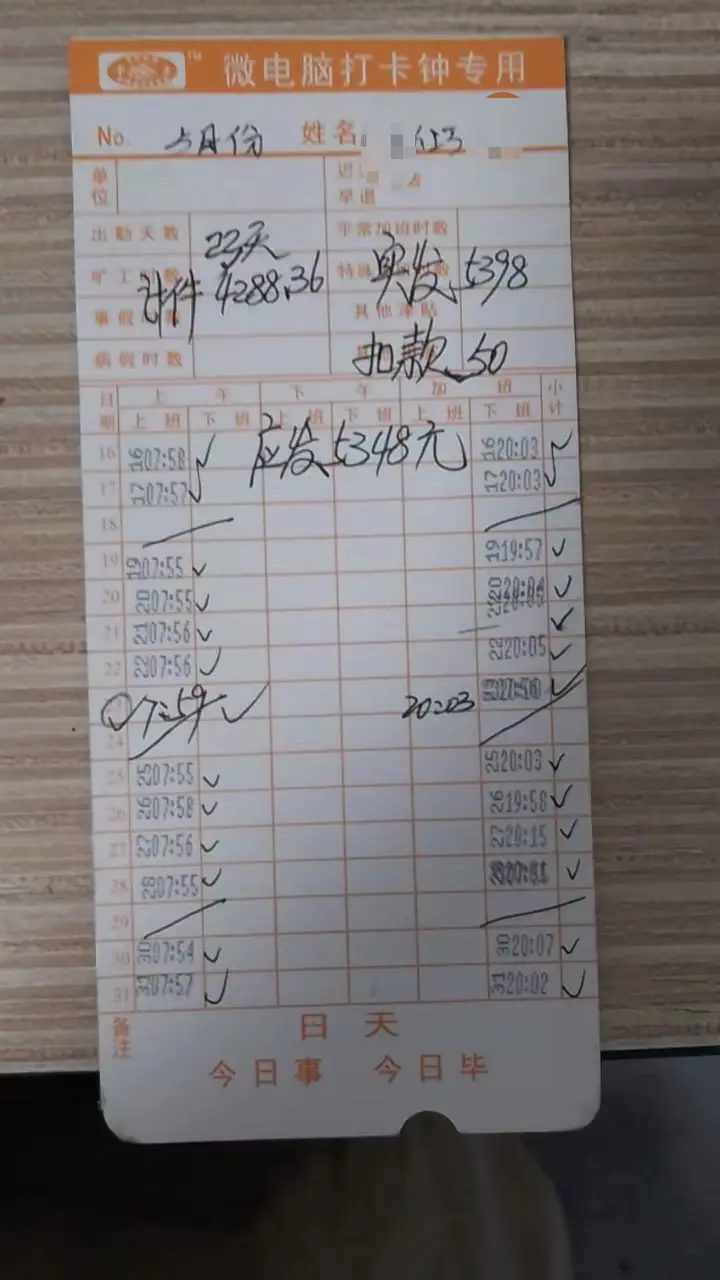 TM 微电脑打卡钟专用
No. 5月份 姓名
单位
早退
出勤天数 23天 平常加班时数
计件 4288.36 实发 5398
病假时数 扣款 50
日期 上午 下午 加班 小计
上班 下班 上班 下班 上班 下班
应发 5348元
16 16 07:58 ✓ 16 20:03 ✓
17 17 07:57 17 20:03
18
19 19 07:55 ✓ 19 19:57 ✓
20 20 07:55 ✓ 20 20:04 ✓
21 21 07:56 ✓ ✓
22 22 07:56 ✓ 22 20:05 ✓
07:59 ✓ 20:03 ✓
24
25 25 07:55 ✓ 25 20:03 ✓
26 26 07:58 ✓ 26 19:58 ✓
27 27 07:56 ✓ 27 20:15 ✓
28 28 07:55 ✓ ✓
29
30 30 07:54 ✓ 30 20:07 ✓
31 31 07:57 ✓ 31 20:02 ✓
备注
日天
今日事 今日毕